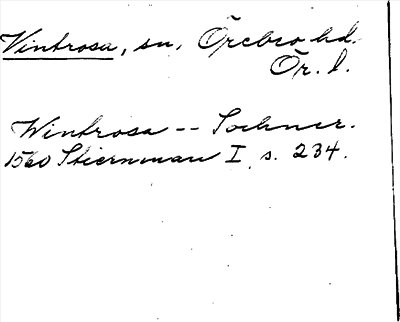 Vintrosa, sn, Örebro hd.
Ör. l.
Wintrosa -- Sochner.
1560 Stiernman I, s. 234.